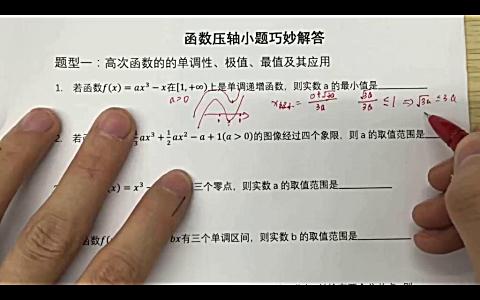 函数压轴小题巧妙解答
题型一：高次函数的的单调性、极值、最值及其应用
1. 若函数f(x) = ax³ − x在[1, +∞)上是单调递增函数，则实数 a 的最小值是
a>0
√3a/3a ≤ 1 ⇒ √3a ≤ 3a
2. 若 ax³ + ½ax² − a + 1(a > 0)的图像经过四个象限，则 a 的取值范围是
(x) = x³ 三个零点，则实数 a 的取值范围是
函数f( bx有三个单调区间，则实数 b 的取值范围是